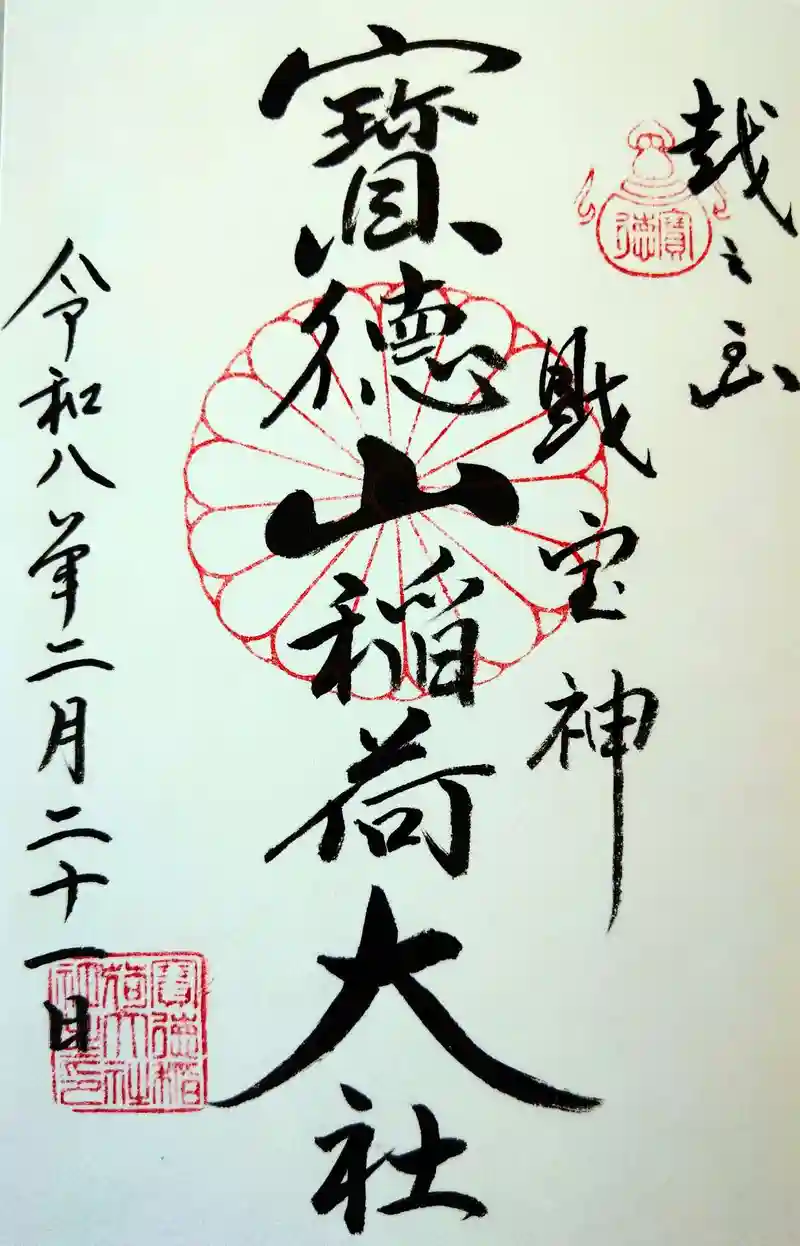 越之国
寶徳
財宝神
寶德山稲荷大社
令和八年二月二十一日
寶徳稲
荷大社